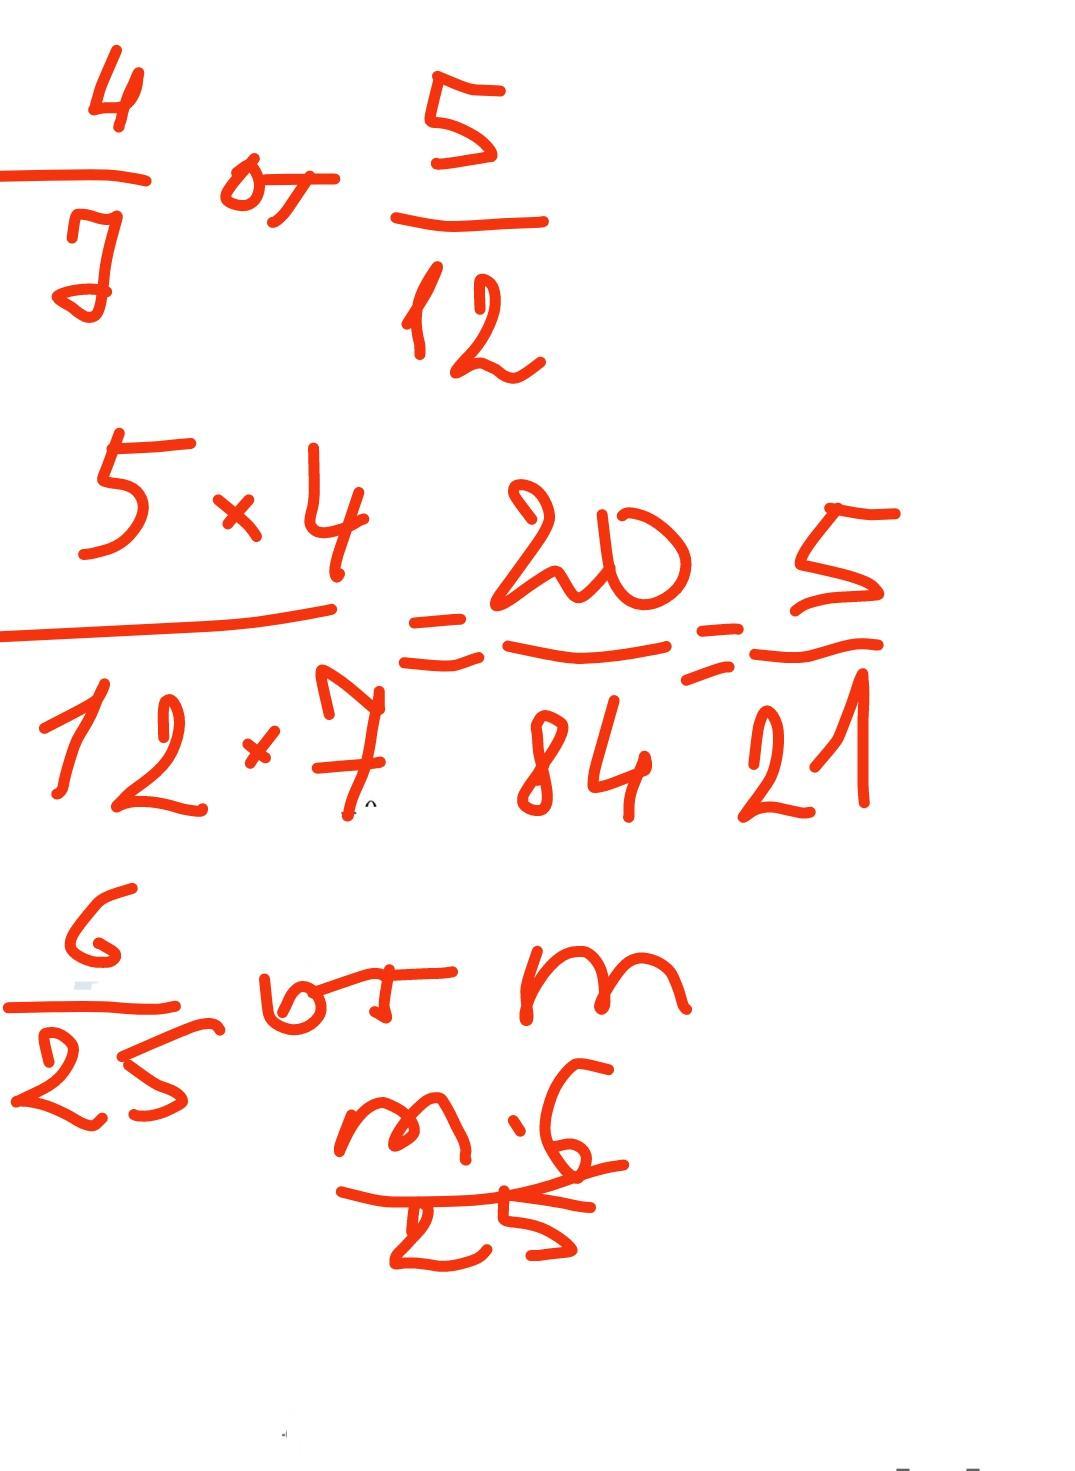 4/7 от 5/12
5 × 4 / 12 × 7 = 20/84 = 5/21
6/25 от m
m · 6 / 25